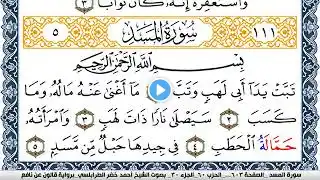 وَاسْتَغْفِرْهُ إِنَّهُ كَانَ تَوَّابًا ٣
١١١ سُورَةُ المَسَدِ ٥
بِسْمِ اللَّهِ الرَّحْمَٰنِ الرَّحِيمِ
تَبَّتْ يَدَآ أَبِي لَهَبٍ وَتَبَّ مَآ أَغْنَىٰ عَنْهُ مَالُهُۥ وَمَا
كَسَبَ ٢ سَيَصْلَىٰ نَارًا ذَاتَ لَهَبٍ ٣ وَامْرَأَتُهُۥ
حَمَّالَةُ الْحَطَبِ ٤ فِي جِيدِهَا حَبْلٌ مِّن مَّسَدٍ ٥
سورة المسد _الصفحة ٦٠٣ _ الحزب ٦٠ _الجزء ٣٠ _ بصوت الشيخ أحمد خضر الطرابلسي _ برواية قالون عن نافع